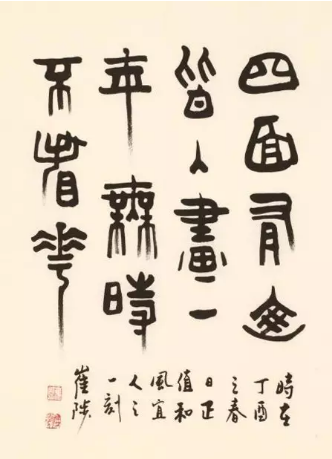 四面有山
皆入畫一
年無時
不看華
時在
丁酉
之春
日正
值和
風宜
人之
一刻
崔陟